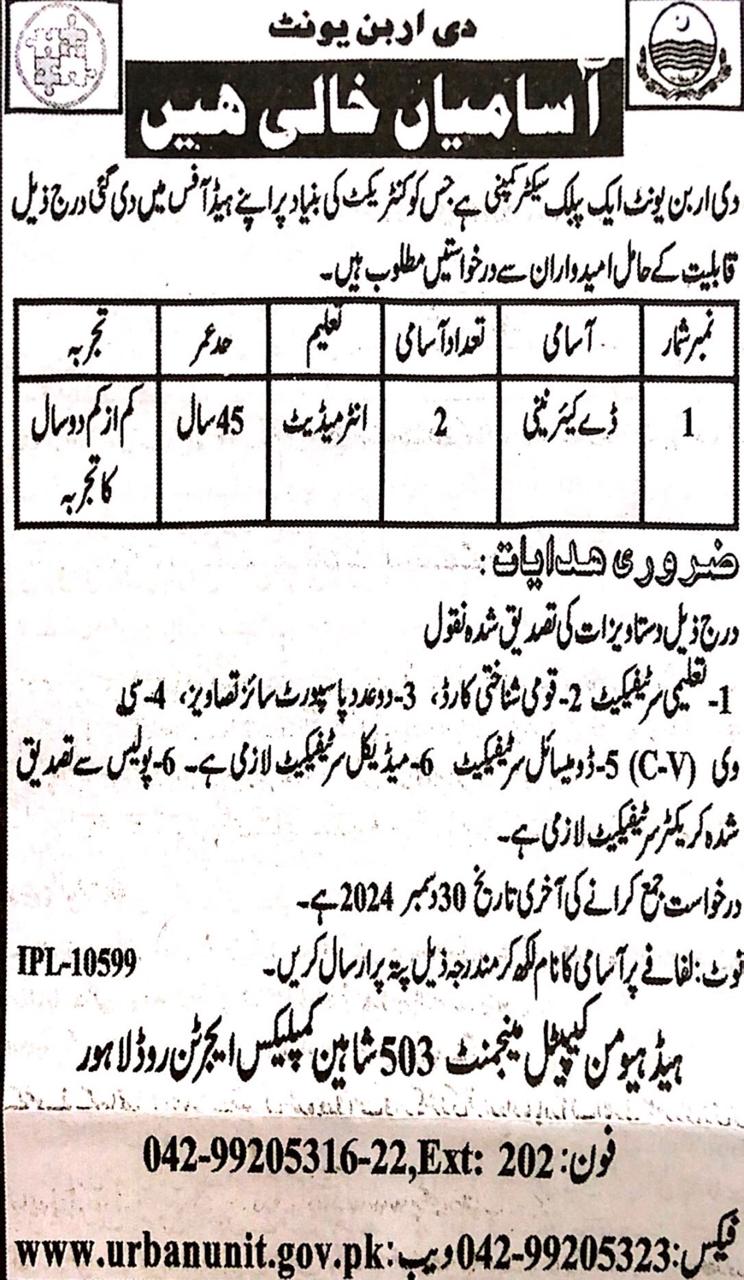 دی اربن یونٹ
آسامیاں خالی ہیں
دی اربن یونٹ ایک پبلک سیکٹر کمپنی ہے جس کو کنٹریکٹ کی بنیاد پر اپنے ہیڈ آفس میں دی گئی درج ذیل
قابلیت کے حامل امیدواران سے درخواستیں مطلوب ہیں۔
نمبر شمار آسامی تعداد آسامی تعلیم حد عمر تجربہ
1 ڈے کیئر نینی 2 انٹرمیڈیٹ 45 سال کم از کم دو سال
کا تجربہ
ضروری ہدایات:
درج ذیل دستاویزات کی تصدیق شدہ نقول
1-تعلیمی سرٹیفکیٹ 2-قومی شناختی کارڈ، 3-دو عدد پاسپورٹ سائز تصاویز، 4-سی
وی (C-V) 5-ڈومیسائل سرٹیفکیٹ 6-میڈیکل سرٹیفکیٹ لازمی ہے۔ 6-پولیس سے تصدیق
شدہ کریکٹر سرٹیفکیٹ لازمی ہے۔
درخواست جمع کرانے کی آخری تاریخ 30 دسمبر 2024 ہے۔
نوٹ: لفافے پر آسامی کا نام لکھ کر مندرجہ ذیل پتہ پر ارسال کریں۔ IPL-10599
ہیڈ ہیومن کیپیٹل مینجمنٹ 503 شاہین کمپلیکس ایجرٹن روڈ لاہور
فون: 042-99205316-22,Ext: 202
فیکس: 042-99205323 ویب: www.urbanunit.gov.pk